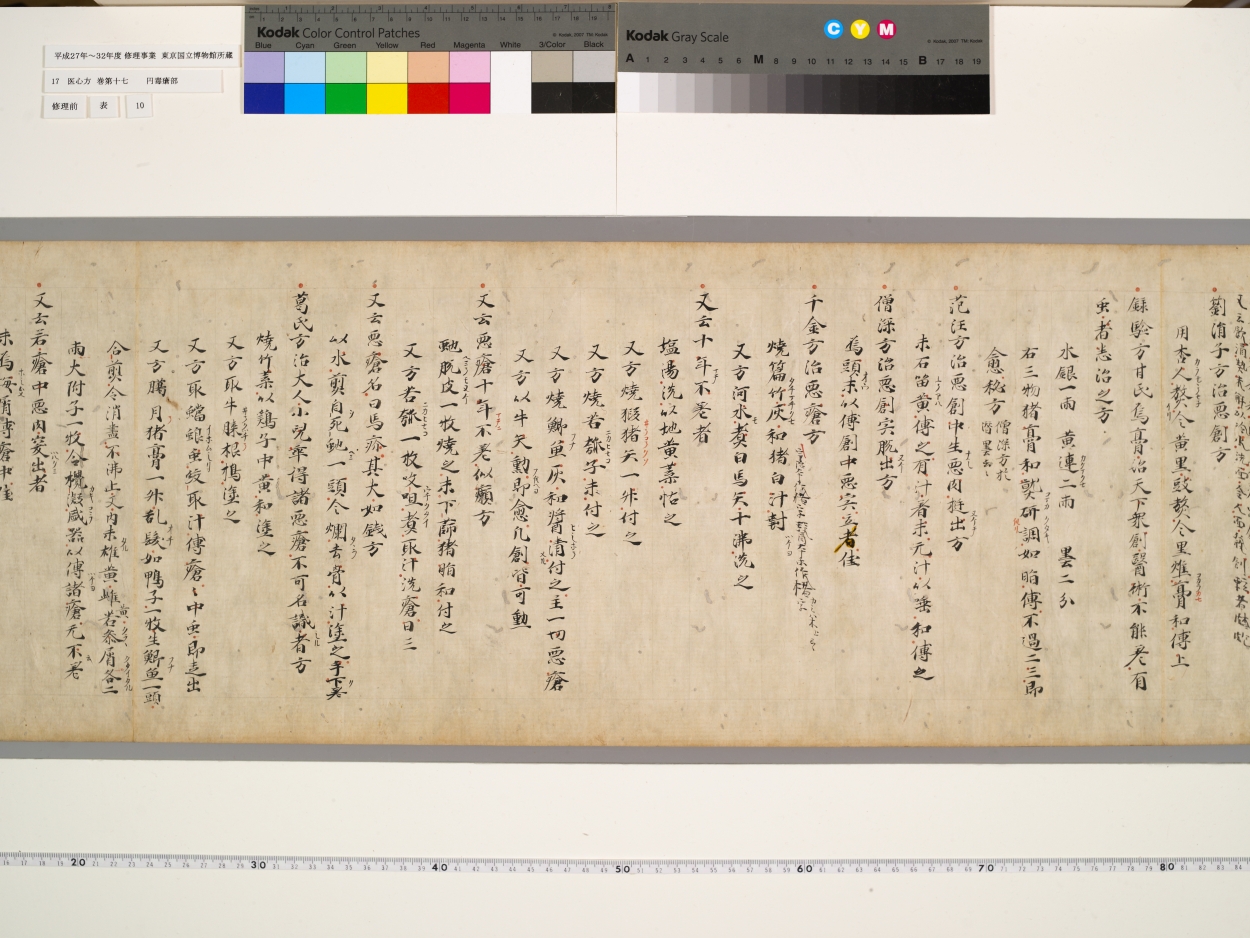 平成27年～32年度 修理事業 東京国立博物館所蔵
17 医心方 巻第十七 丹毒瘡部
修理前 表 10
Kodak Color Control Patches
Blue Cyan Green Yellow Red Magenta White 3/Color Black
Kodak Gray Scale
C Y M
A 1 2 3 4 5 6 M 8 9 10 11 12 13 14 15 B 17 18 19
劉涓子方治悪創方
用杏人熬令黄里豉熬令里熊膏和傅上
録験方甘氏烏膏治天下衆創醫術不能差有
虫者志治之方
水銀一兩 黄連二兩 曇二分
右三物猪膏和
研調如脂傅不過二三即
愈秘方
范汪方治悪創中生悪肉挺出方
末石留黄傅之有汁者末无汁以唾和傅之
僧深方治悪創宍脱出方
烏頭末以傅創中悪宍立者佳
千金方治悪瘡方
焼篇竹灰和猪白汁封
又方河水煮白馬矢十沸洗之
又云十年不差者
塩湯洗以地黄葉怗之
又方焼猳猪矢一升付之
又方焼苦瓠子末付之
又方焼鯽魚灰和醤清付之主一切悪瘡
又方以牛矢勳即愈凡創皆可勳
又云悪瘡十年不差似癩方
虵脱皮一枚焼之末下篩猪脂和付之
又方苦瓠一枚㕮咀煮取汁洗瘡日三
又云悪瘡名曰馬疥其大如銭方
以水煎自死虵一頭令爛去骨以汁塗之手下差
葛氏方治大人小兒卒得諸悪瘡不可名識者方
焼竹葉以鶏子中黄和塗之
又方取牛膝根搗塗之
又方取蠐螬虫絞取汁傅瘡〻中虫即走出
又方臈月猪膏一升乱髪如鴨子一枚生鯽魚一頭
合煎令消盡不沸止又内末雄黄雌苦参屑各二
兩大附子一枚令攪凝咸器以傅諸瘡无不差
又云若瘡中悪肉突出者
20 30 40 50 60 70 80